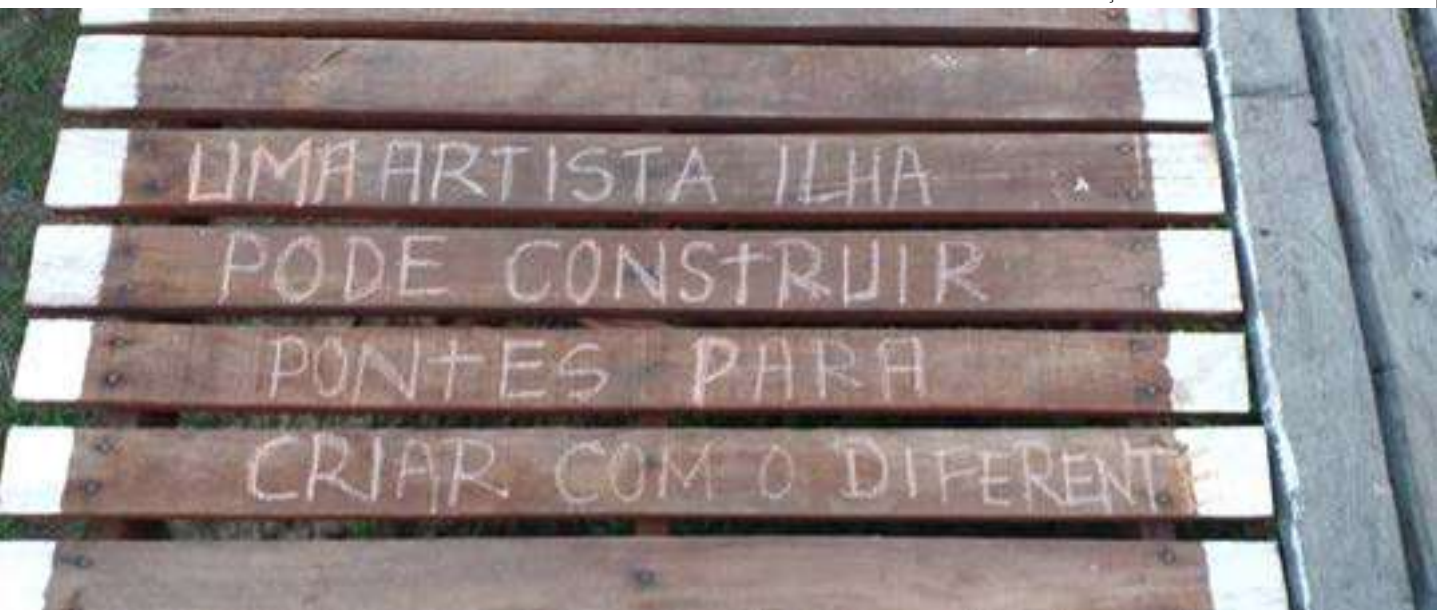 UMA ARTISTA ILHA
PODE CONSTRUIR
PONTES PARA
CRIAR COM O DIFERENTE